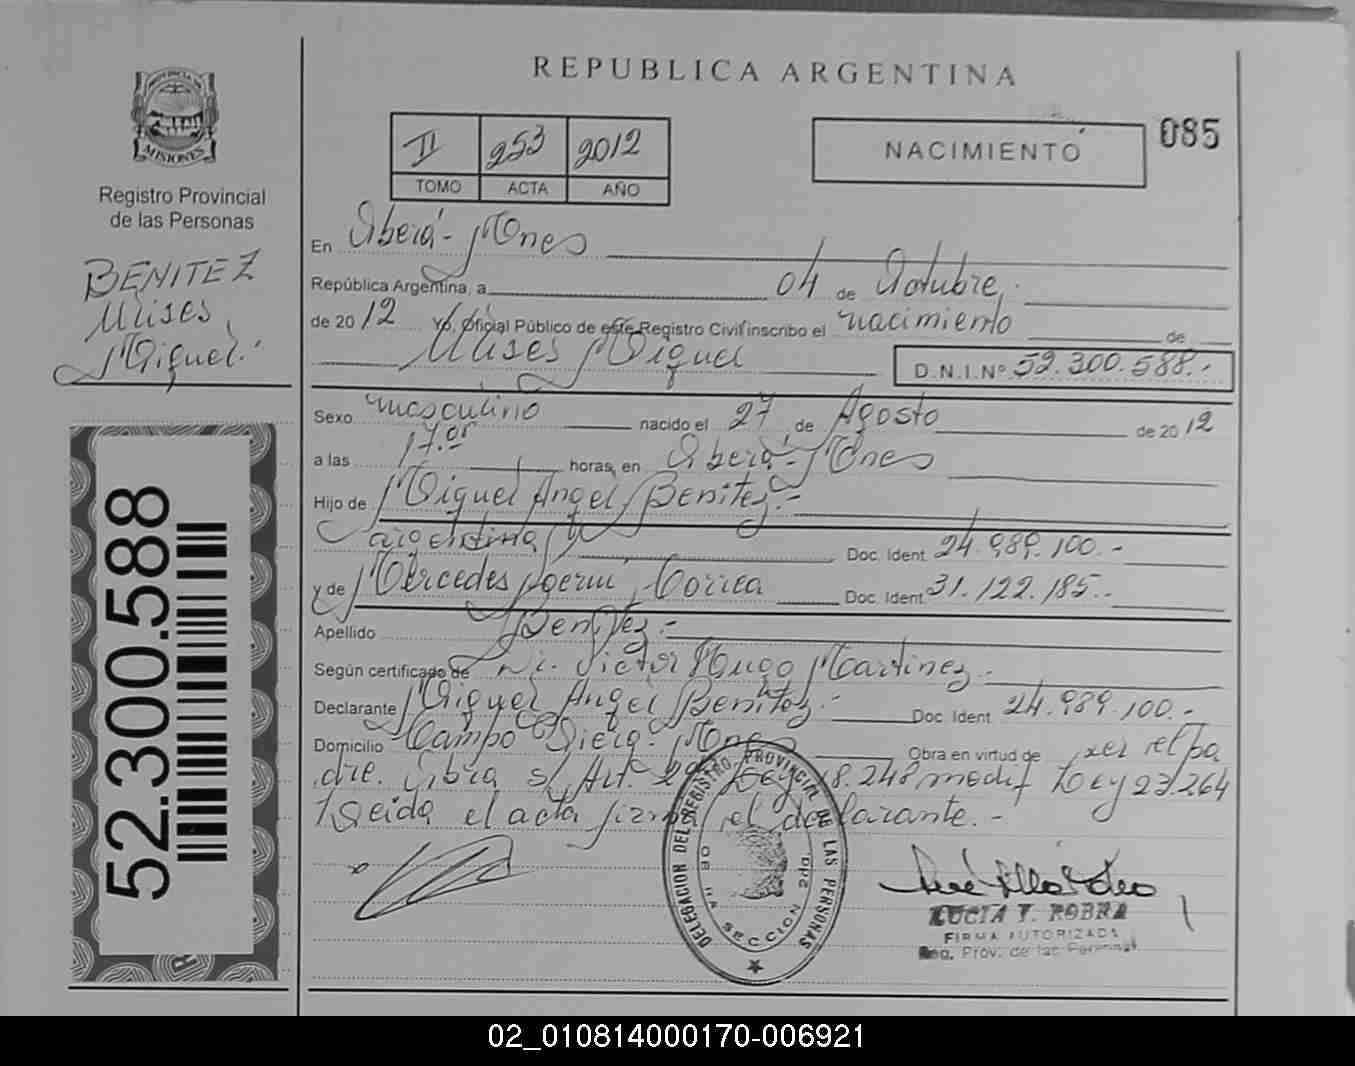 REPUBLICA ARGENTINA
PROVINCIA DE
MISIONES
Registro Provincial
de las Personas
BENITEZ
Ulises
Miguel.
52.300.588
II 253 2012
TOMO ACTA AÑO
NACIMIENTO
085
En Oberá - Mnes
República Argentina, a 04 de Octubre,
de 2012 Yo, Oficial Público de este Registro Civil inscribo el nacimiento de
Ulises Miguel D.N.I.Nº 52.300.588.-
Sexo masculino nacido el 27 de Agosto de 2012
a las 17.05 horas, en Oberá - Mnes
Hijo de Miguel Angel Benitez.-
argentina Doc. Ident. 24.989.100.-
y de Mercedes Noemi Correa Doc. Ident. 31.122.185.-
Apellido Benitez.-
Según certificado de Victor Hugo Martinez.-
Declarante Miguel Angel Benitez.- Doc. Ident. 24.989.100.-
Domicilio Campo Viera - Mnes Obra en virtud de ser el pa
dre. Obra s/ Art. Ley 18.248 modif Ley 23.264
Leida el acta firma el declarante.-
DELEGACION DEL REGISTRO PROVINCIAL DE LAS PERSONAS
SECCION
FIRMA AUTORIZADA
Reg. Prov. de las Personas
02_010814000170-006921